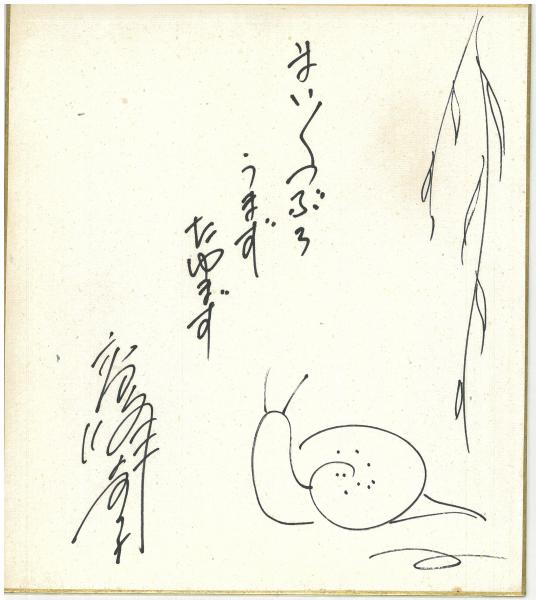 まいつぶろ
うまず
たゆまず